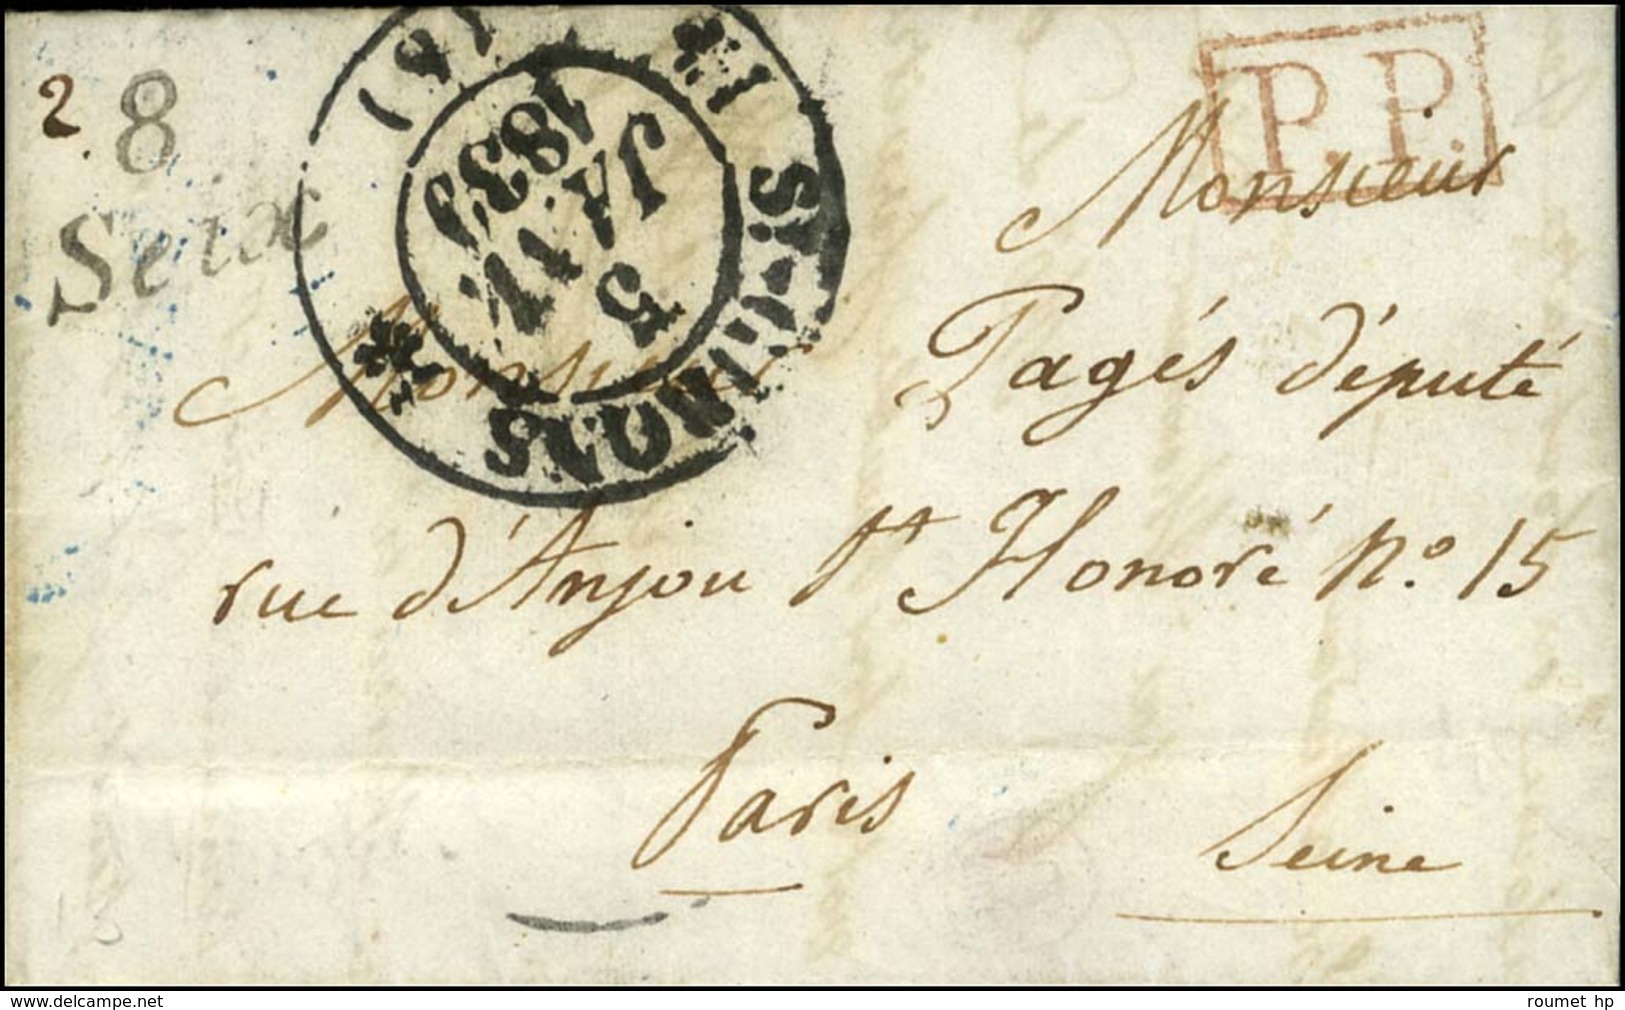 2.
8
Seix
P.P.
ST-GIRONS
(8)
5
JANV
1833
Monsieur
Monsieur Pagés député
rue d'Anjou st Honoré no. 15
Paris
Seine
www.delcampe.net
roumet hp